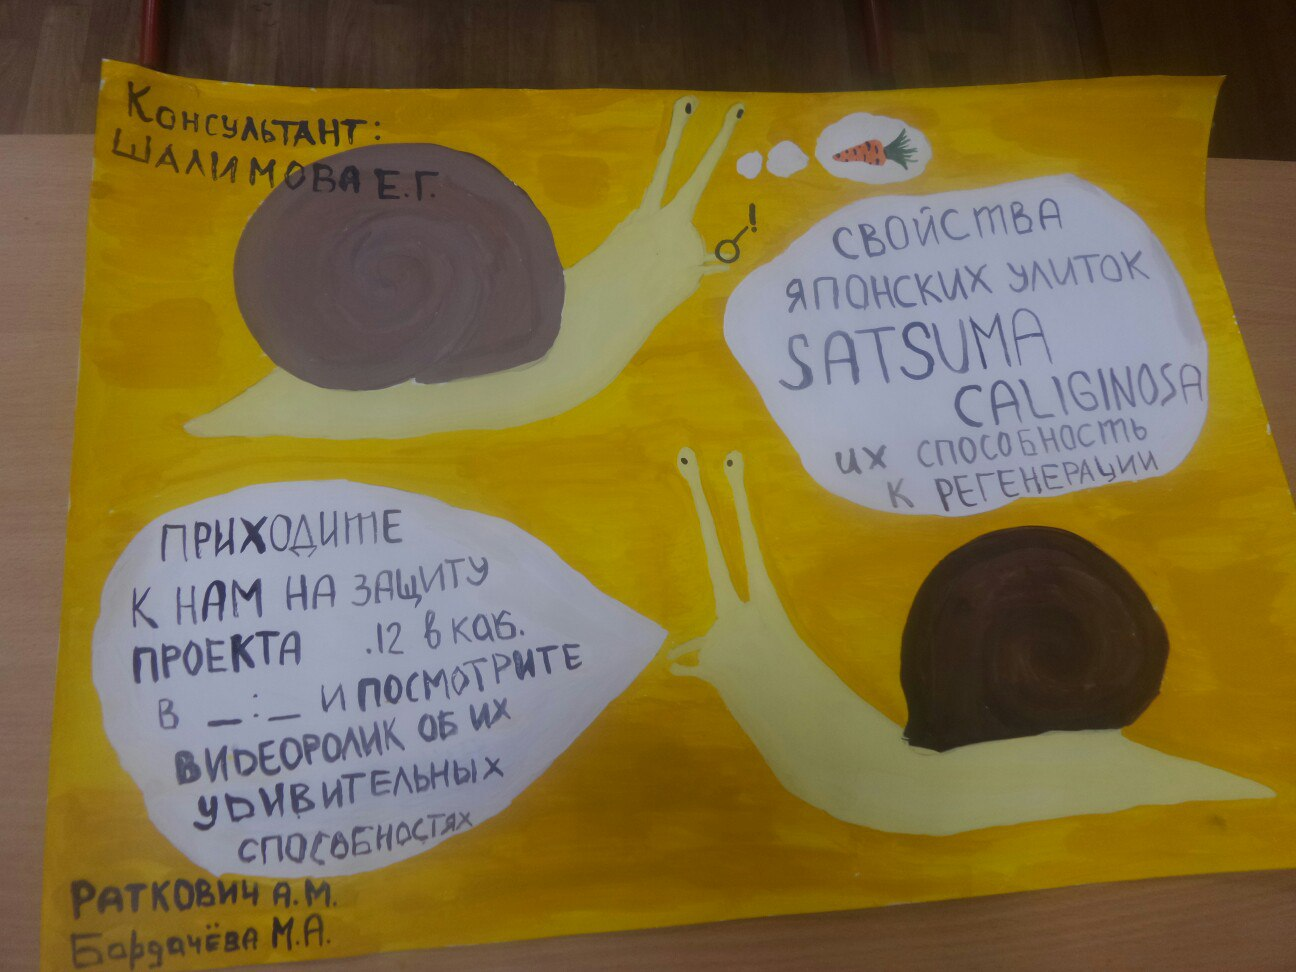 Консультант:
ШАЛИМОВА Е.Г.
!
СВОЙСТВА
ЯПОНСКИХ УЛИТОК
SATSUMA
CALIGINOSA
ИХ СПОСОБНОСТЬ
К РЕГЕНЕРАЦИИ
ПРИХОДИТЕ
К НАМ НА ЗАЩИТУ
ПРОЕКТА .12 В каб.
В _:_ И ПОСМОТРИТЕ
ВИДЕОРОЛИК ОБ ИХ
УДИВИТЕЛЬНЫХ
СПОСОБНОСТЯХ
РАТКОВИЧ А.М.
Бардачёва М.А.